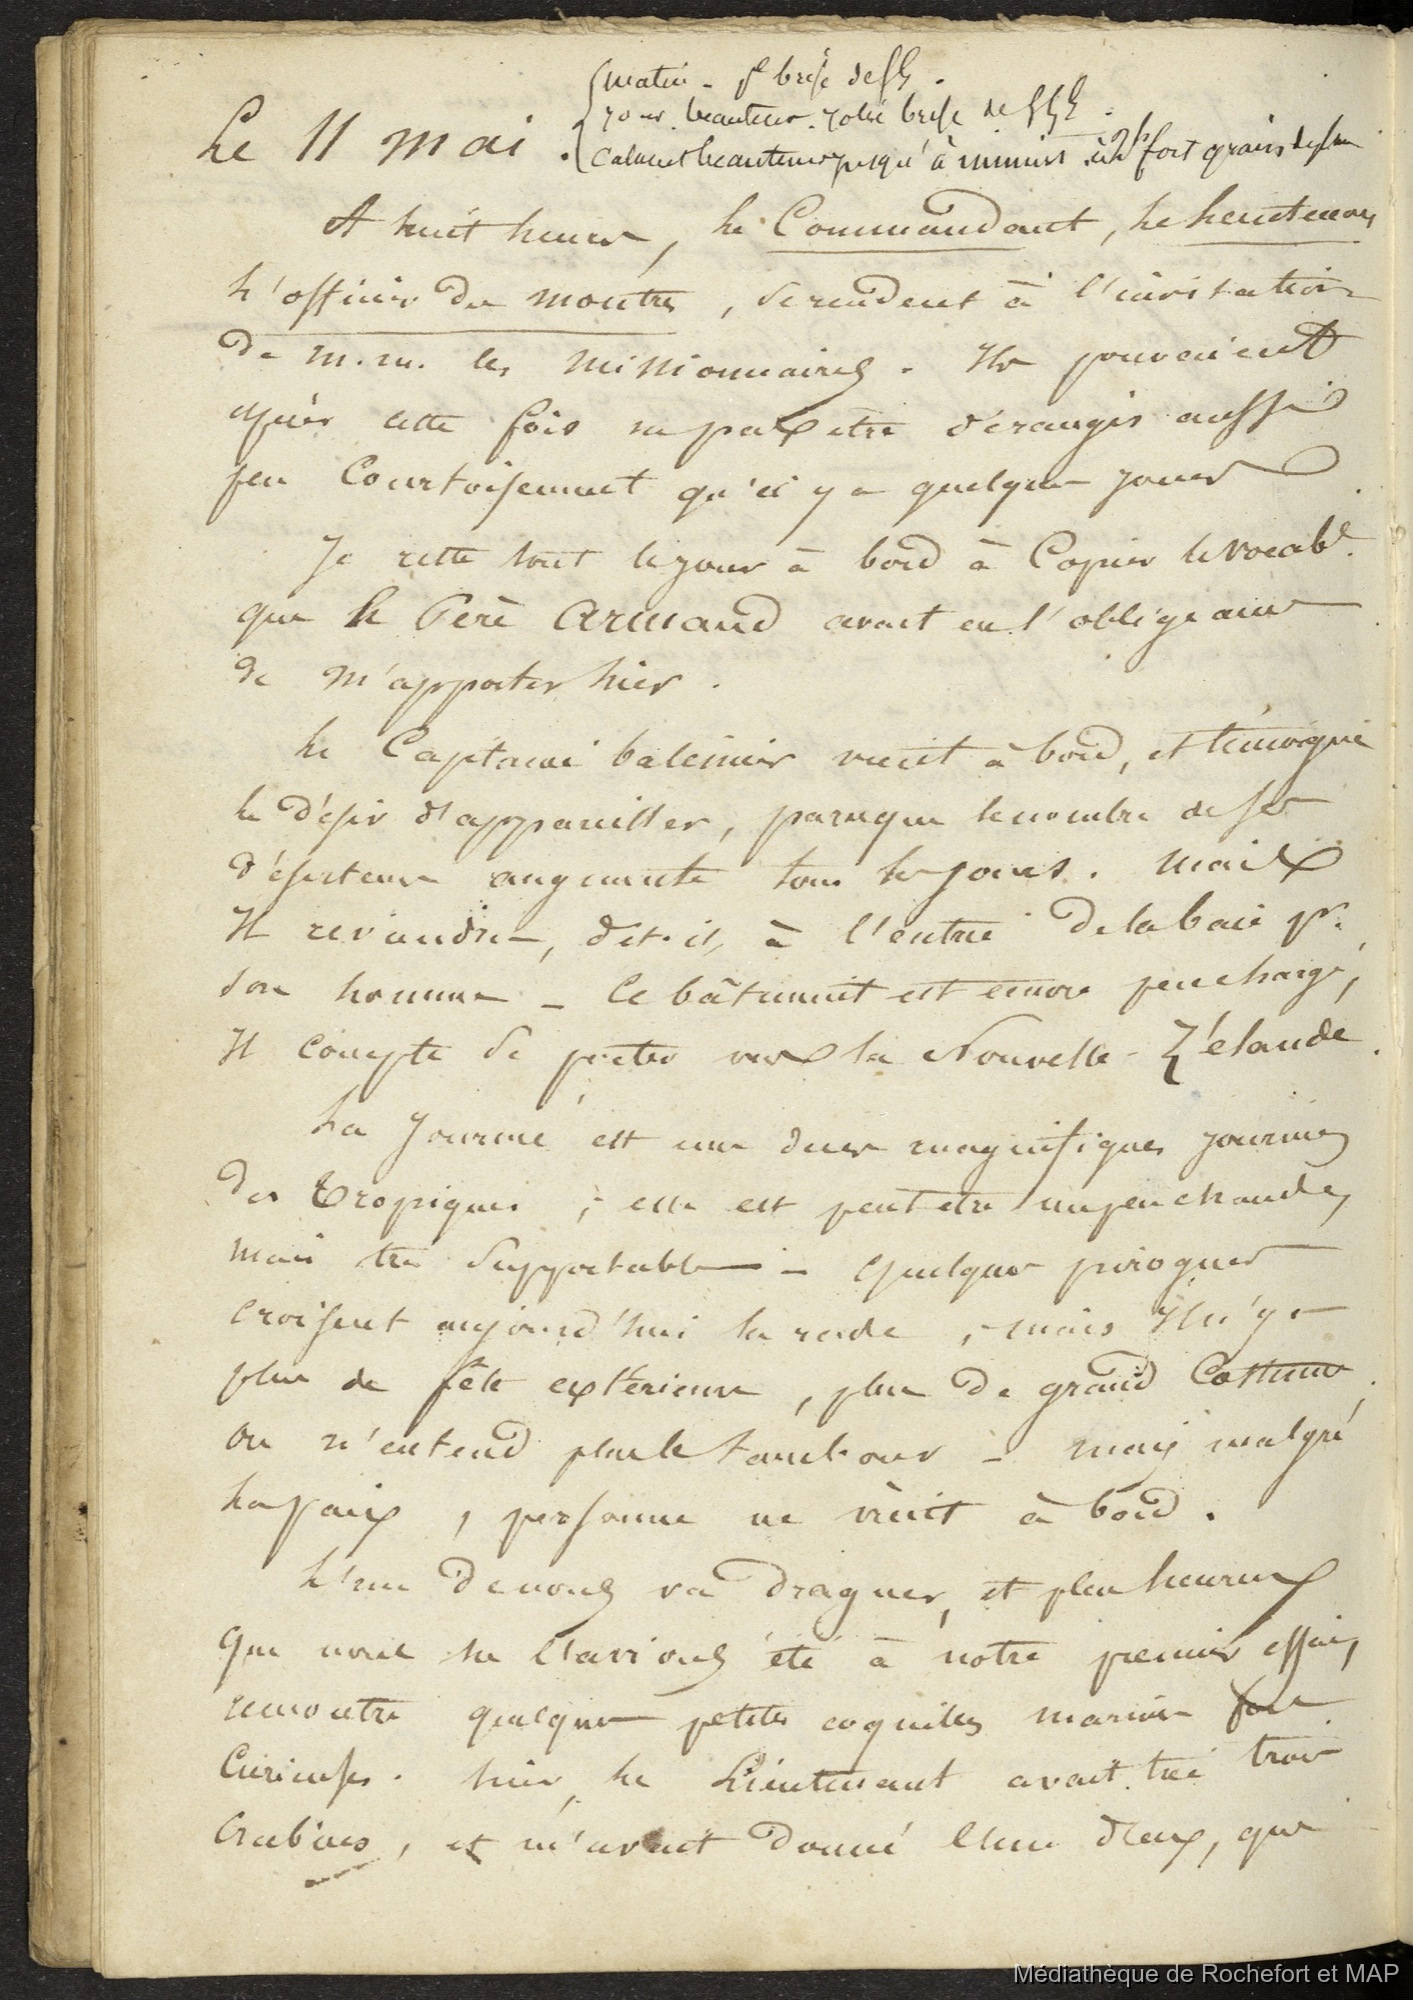 matin - pte brise de SE.
Le 11 mai. jour. beau temps. jolie brise de SSE.
Calme et beau temps jusqu'à minuit. fort grains
A huit heures, le Commandant, le Lieutenant
L'officier de montres, se rendent à l'invitation
de m.m. les missionnaires. Ils pouvaient
après cette fois ne pas être dérangés aussi
peu Courtoisement qu'il y a quelques jours
Je reste tout le jour à bord à Copier le vocabre.
que le Père Armand avait eu l'obligeance
de m'apporter hier.
Le Capitaine baleinier vient à bord, et témoigne
le désir d'appareiller, parceque le nombre de ses
déserteurs augmente tous les jours. mais
Il reviendra, dit-il, à l'entrée de la baie pr.
son homme - Ce bâtiment est encore peu chargé,
Il compte se porter vers la Nouvelle-Zélande.
La Journée est une des magnifiques journées
des tropiques ; elle est peut etre un peu chaude,
mais très supportable - quelques pirogues
croisent aujourd'hui la rade, - mais Il n'y a
plus de fête extérieure, plus de grand Costume,
on n'entend plus le tambour - mais malgré
la paix, personne ne vient à bord.
L'un de nous va draguer, et plus heureux
que nous ne l'avions été à notre premier essai,
rencontre quelques petites coquilles marines fort
Curieuses. hier, le Lieutenant avait tué trois
Crabiers, et m'avait donné l'un d'eux, que
Médiathèque de Rochefort et MAP